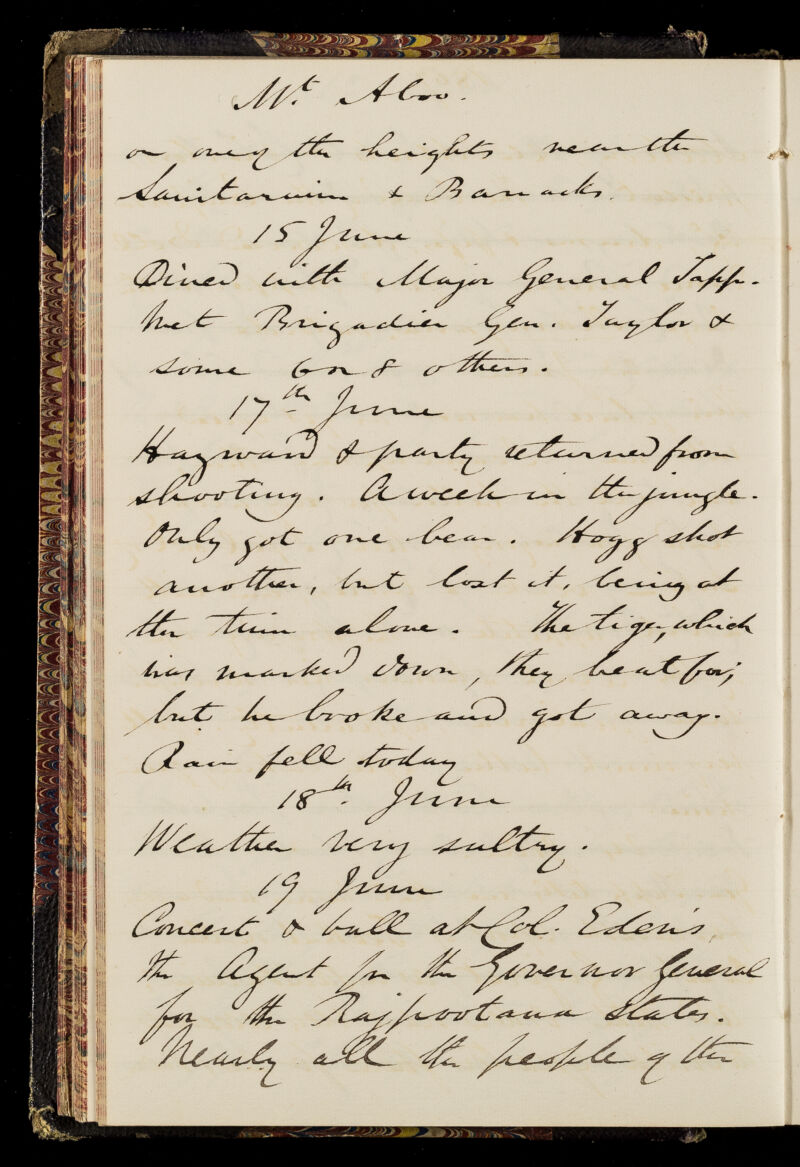 Mt. Aboo.
on one of the heights near the
Sanitarium & Barracks.
15 June
Dined with Major General Tapp.
Met Brigadier Gen. Taylor &
some 6 or 8 others.
17th June
Hayward & party returned from
shooting. A week in the jungle.
Only got one bear. Hogg shot
another, but lost it, being at
the time alone. The tiger, which
was marked down, they beat for;
but he broke and got away.
Rain fell today
18th. June
Weather very sultry.
19 June
Concert & ball at Col. Eden's,
the Agent for the Governor General
for the Rajpootana States.
Nearly all the people of the